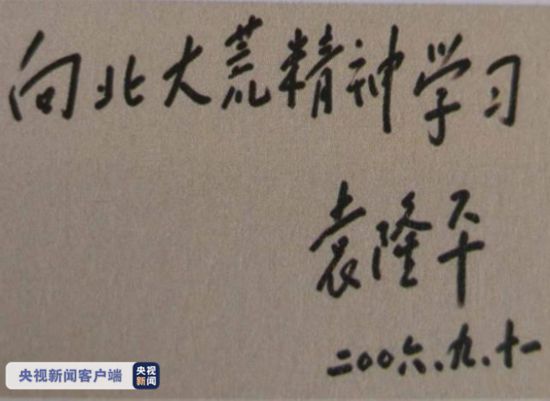 向北大荒精神学习
袁隆平
二〇〇六.九.十一
央视新闻客户端
央视
新闻